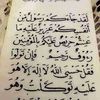 لَقَدْ جَاءَكُمْ رَسُولٌ مِنْ
أَنْفُسِكُمْ عَزِيزٌ عَلَيْهِ مَا
عَنِتُّمْ حَرِيصٌ عَلَيْكُمْ بِالْمُؤْمِنِينَ
رَءُوفٌ رَحِيمٌ فَإِنْ تَوَلَّوْا
فَقُلْ حَسْبِيَ اللَّهُ لَا إِلَهَ إِلَّا هُوَ
عَلَيْهِ تَوَكَّلْتُ وَهُوَ